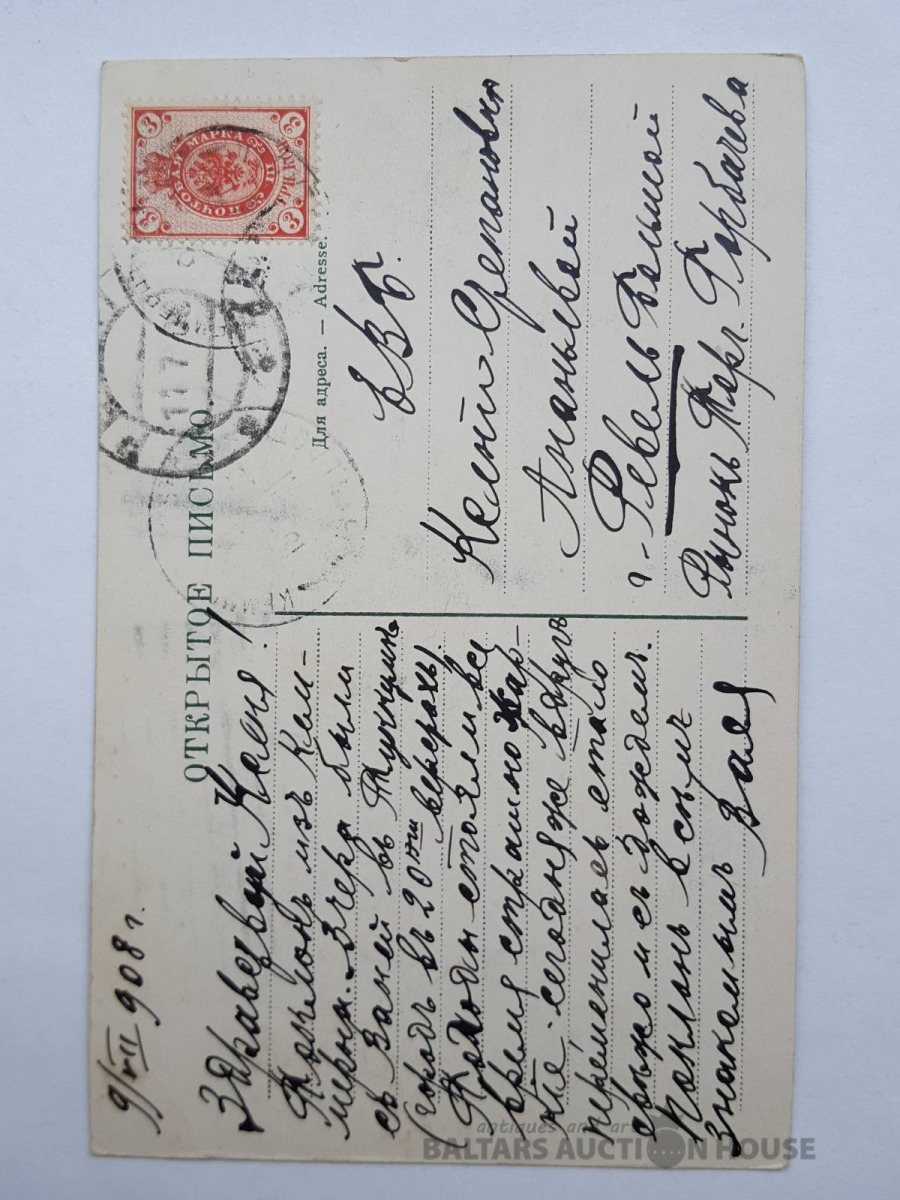 9/VII 908 г.
ОТКРЫТОЕ ПИСЬМО.
Для адреса. — Adresse.
3 ПОЧТОВАЯ МАРКА 3
3 3
Здравствуй Катя!
Поклонъ изъ Ким-
мерна. Вчера были
съ Ваней въ Туккумѣ
(городъ въ 20ти верстахъ)
Погоды стояли все
время страшно жар-
кіе. Сегодня же вдругъ
перемѣнилась стало
свѣжо и съ дождем.
Поклонъ всѣмъ
знакомымъ Валя
ЕВБ.
Степановнѣ
Ананьевой
г. Ревель Большой
Рынокъ Торг. Горбачева
antiques and art
BALTARS AUCTION HOUSE